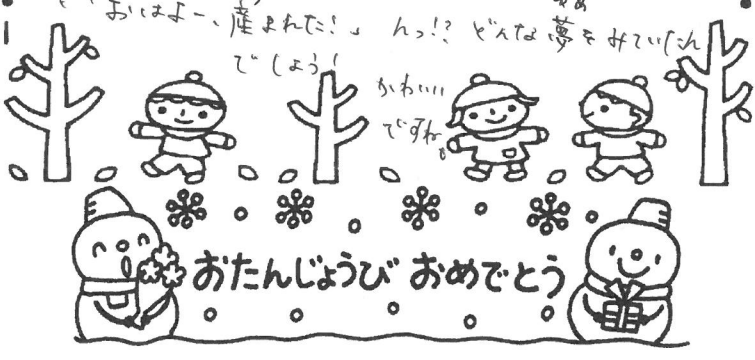 おはよー、産まれた！」 んっ!? どんな夢をみていたん
でしょう！
かわいい
ですね。
おたんじょうび おめでとう